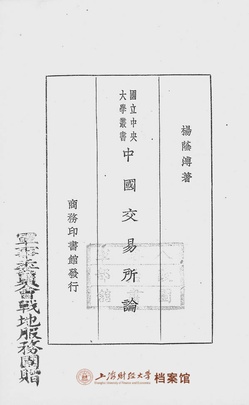 楊蔭溥著
國立中央
大學叢書
中國交易所論
商務印書館發行
軍事委員會戰地服務團贈
上海财经大学
档案馆